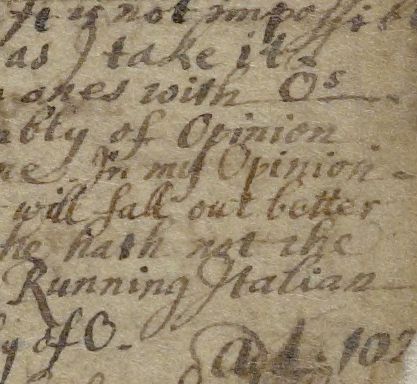 It is not impossib
as I take it
ones with Os
bly of Opinion
me. In my Opinion
will fall out better
he hath not the
Running Italian
y of O.
102